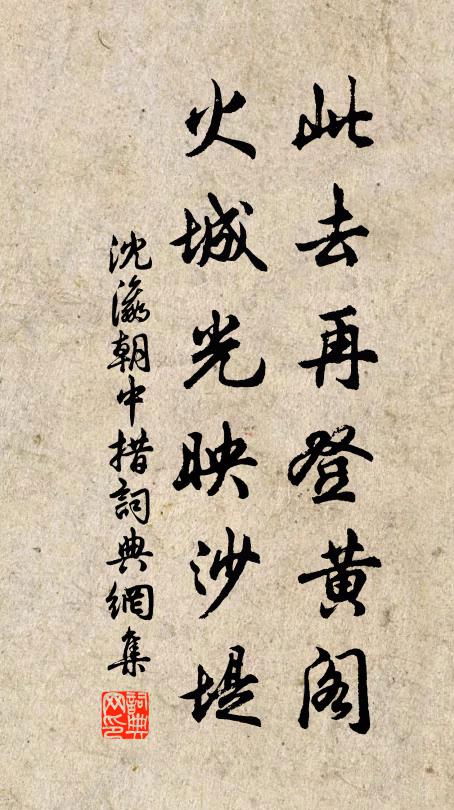 此去再登黄阁
火城光映沙堤
沈瀛朝中措詞典網集
詞典网印